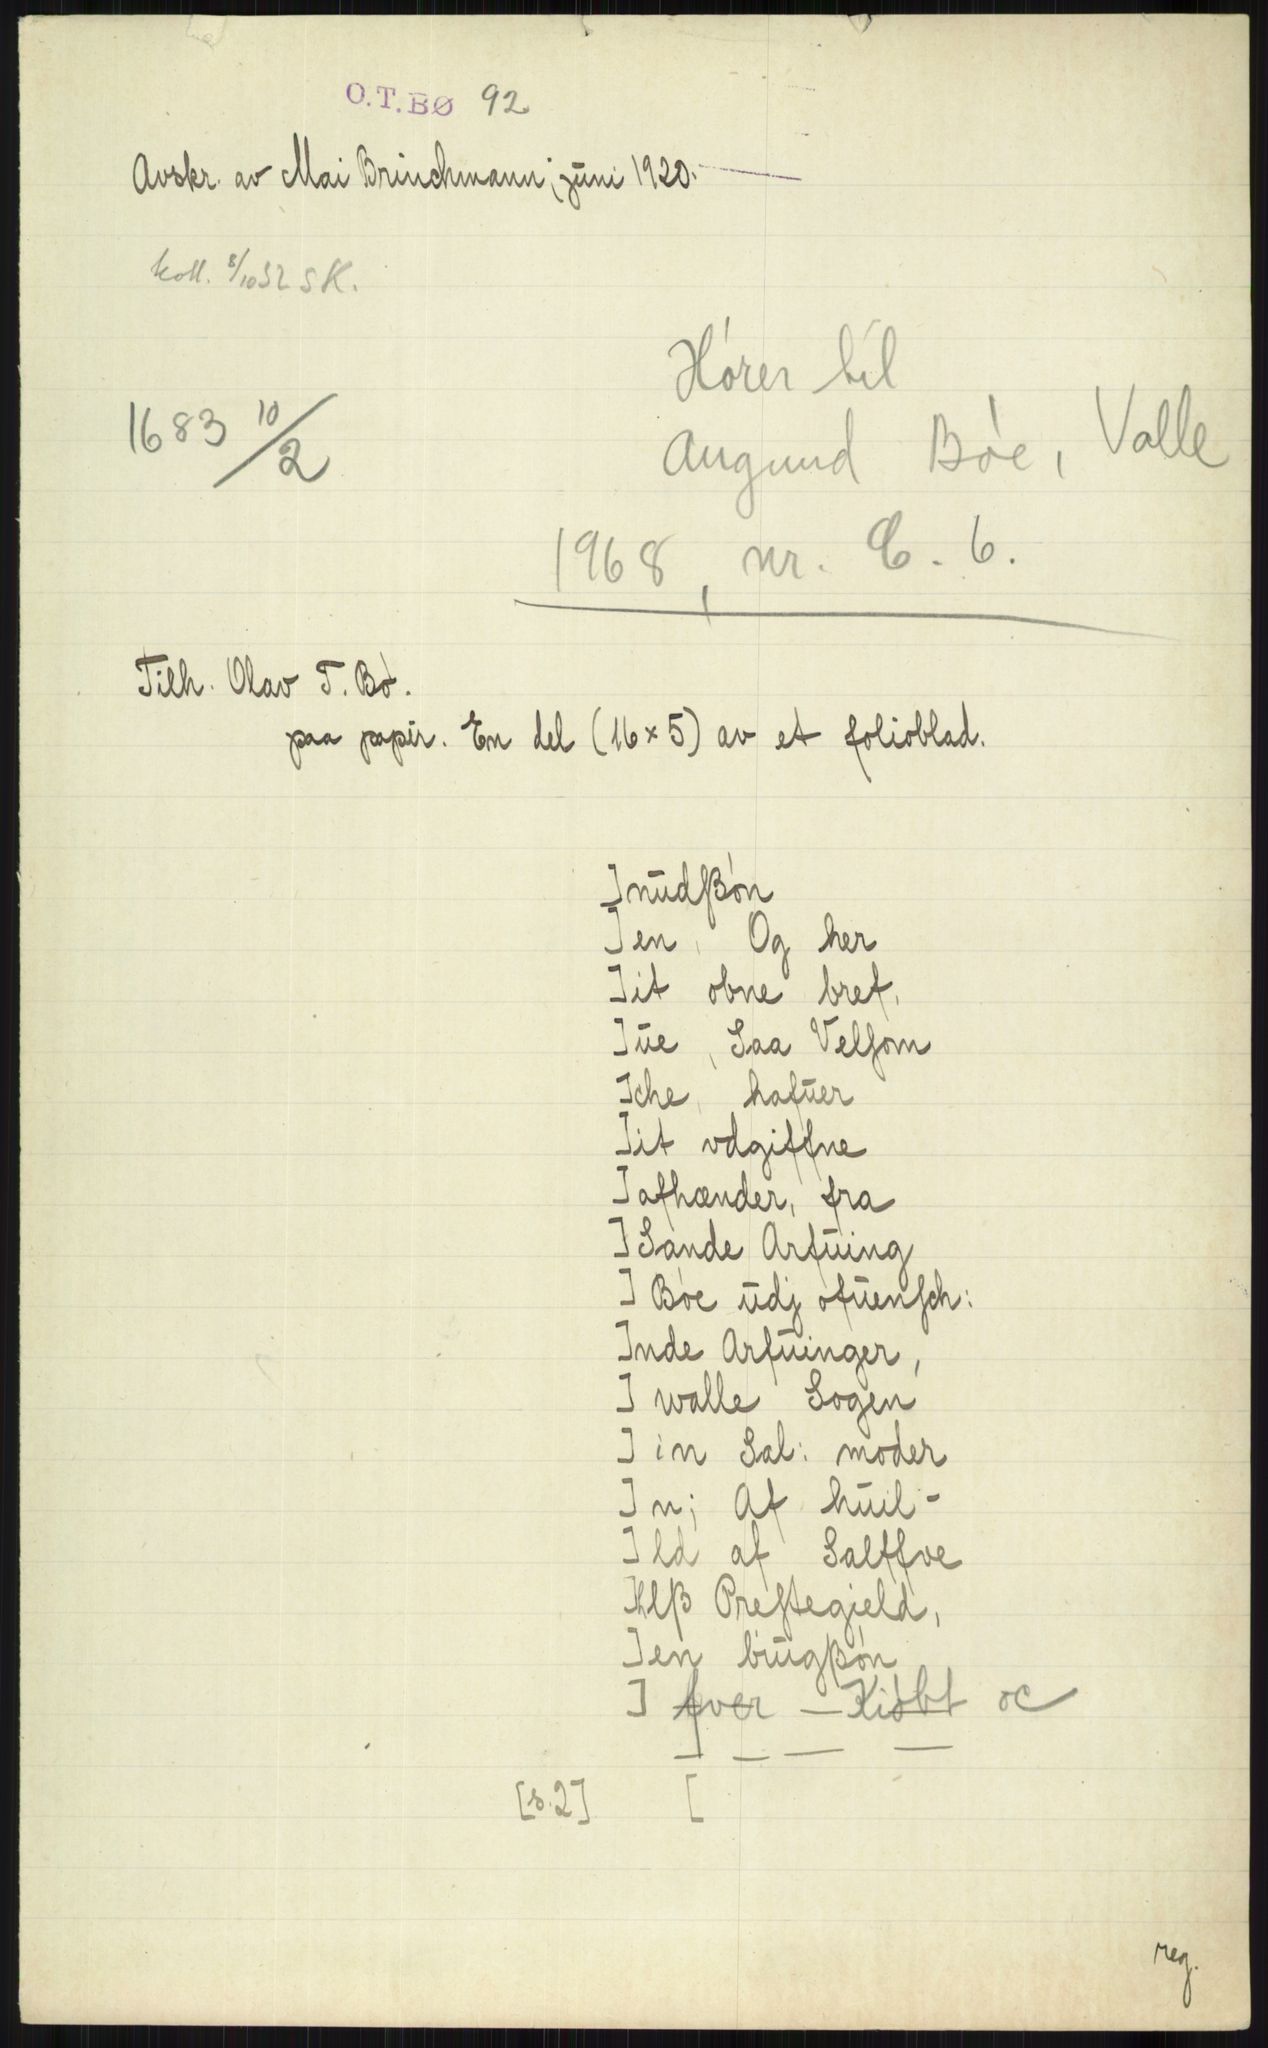 O.T.BØ 92
Avskr. av Mai Brinchmann, juni 1920.
koll. 8/10 52 SK.
Hører til
1683 10/2
Augund Bøe, Valle
1968, nr. C. 6.
Tilh. Olav T. Bø.
paa papir. En del (16 x 5) av et folioblad.
]nŭdßøn
]en, Og her
]it obne bref,
]ŭe, Saa Velsom
]che, hafŭer
]it vdgiffne
]afhænder, fra
]Sande Arfŭing
] Bøe ŭdj ofŭensch:
]nde Arfŭinger,
] walle Sogen
] in Sal: moder
]n; Af hŭil-
]ld af Salffve
]llß Prestegield,
]en biŭgßøn
] fver – Kiøbt oc
] — — —
[s. 2] [
reg.